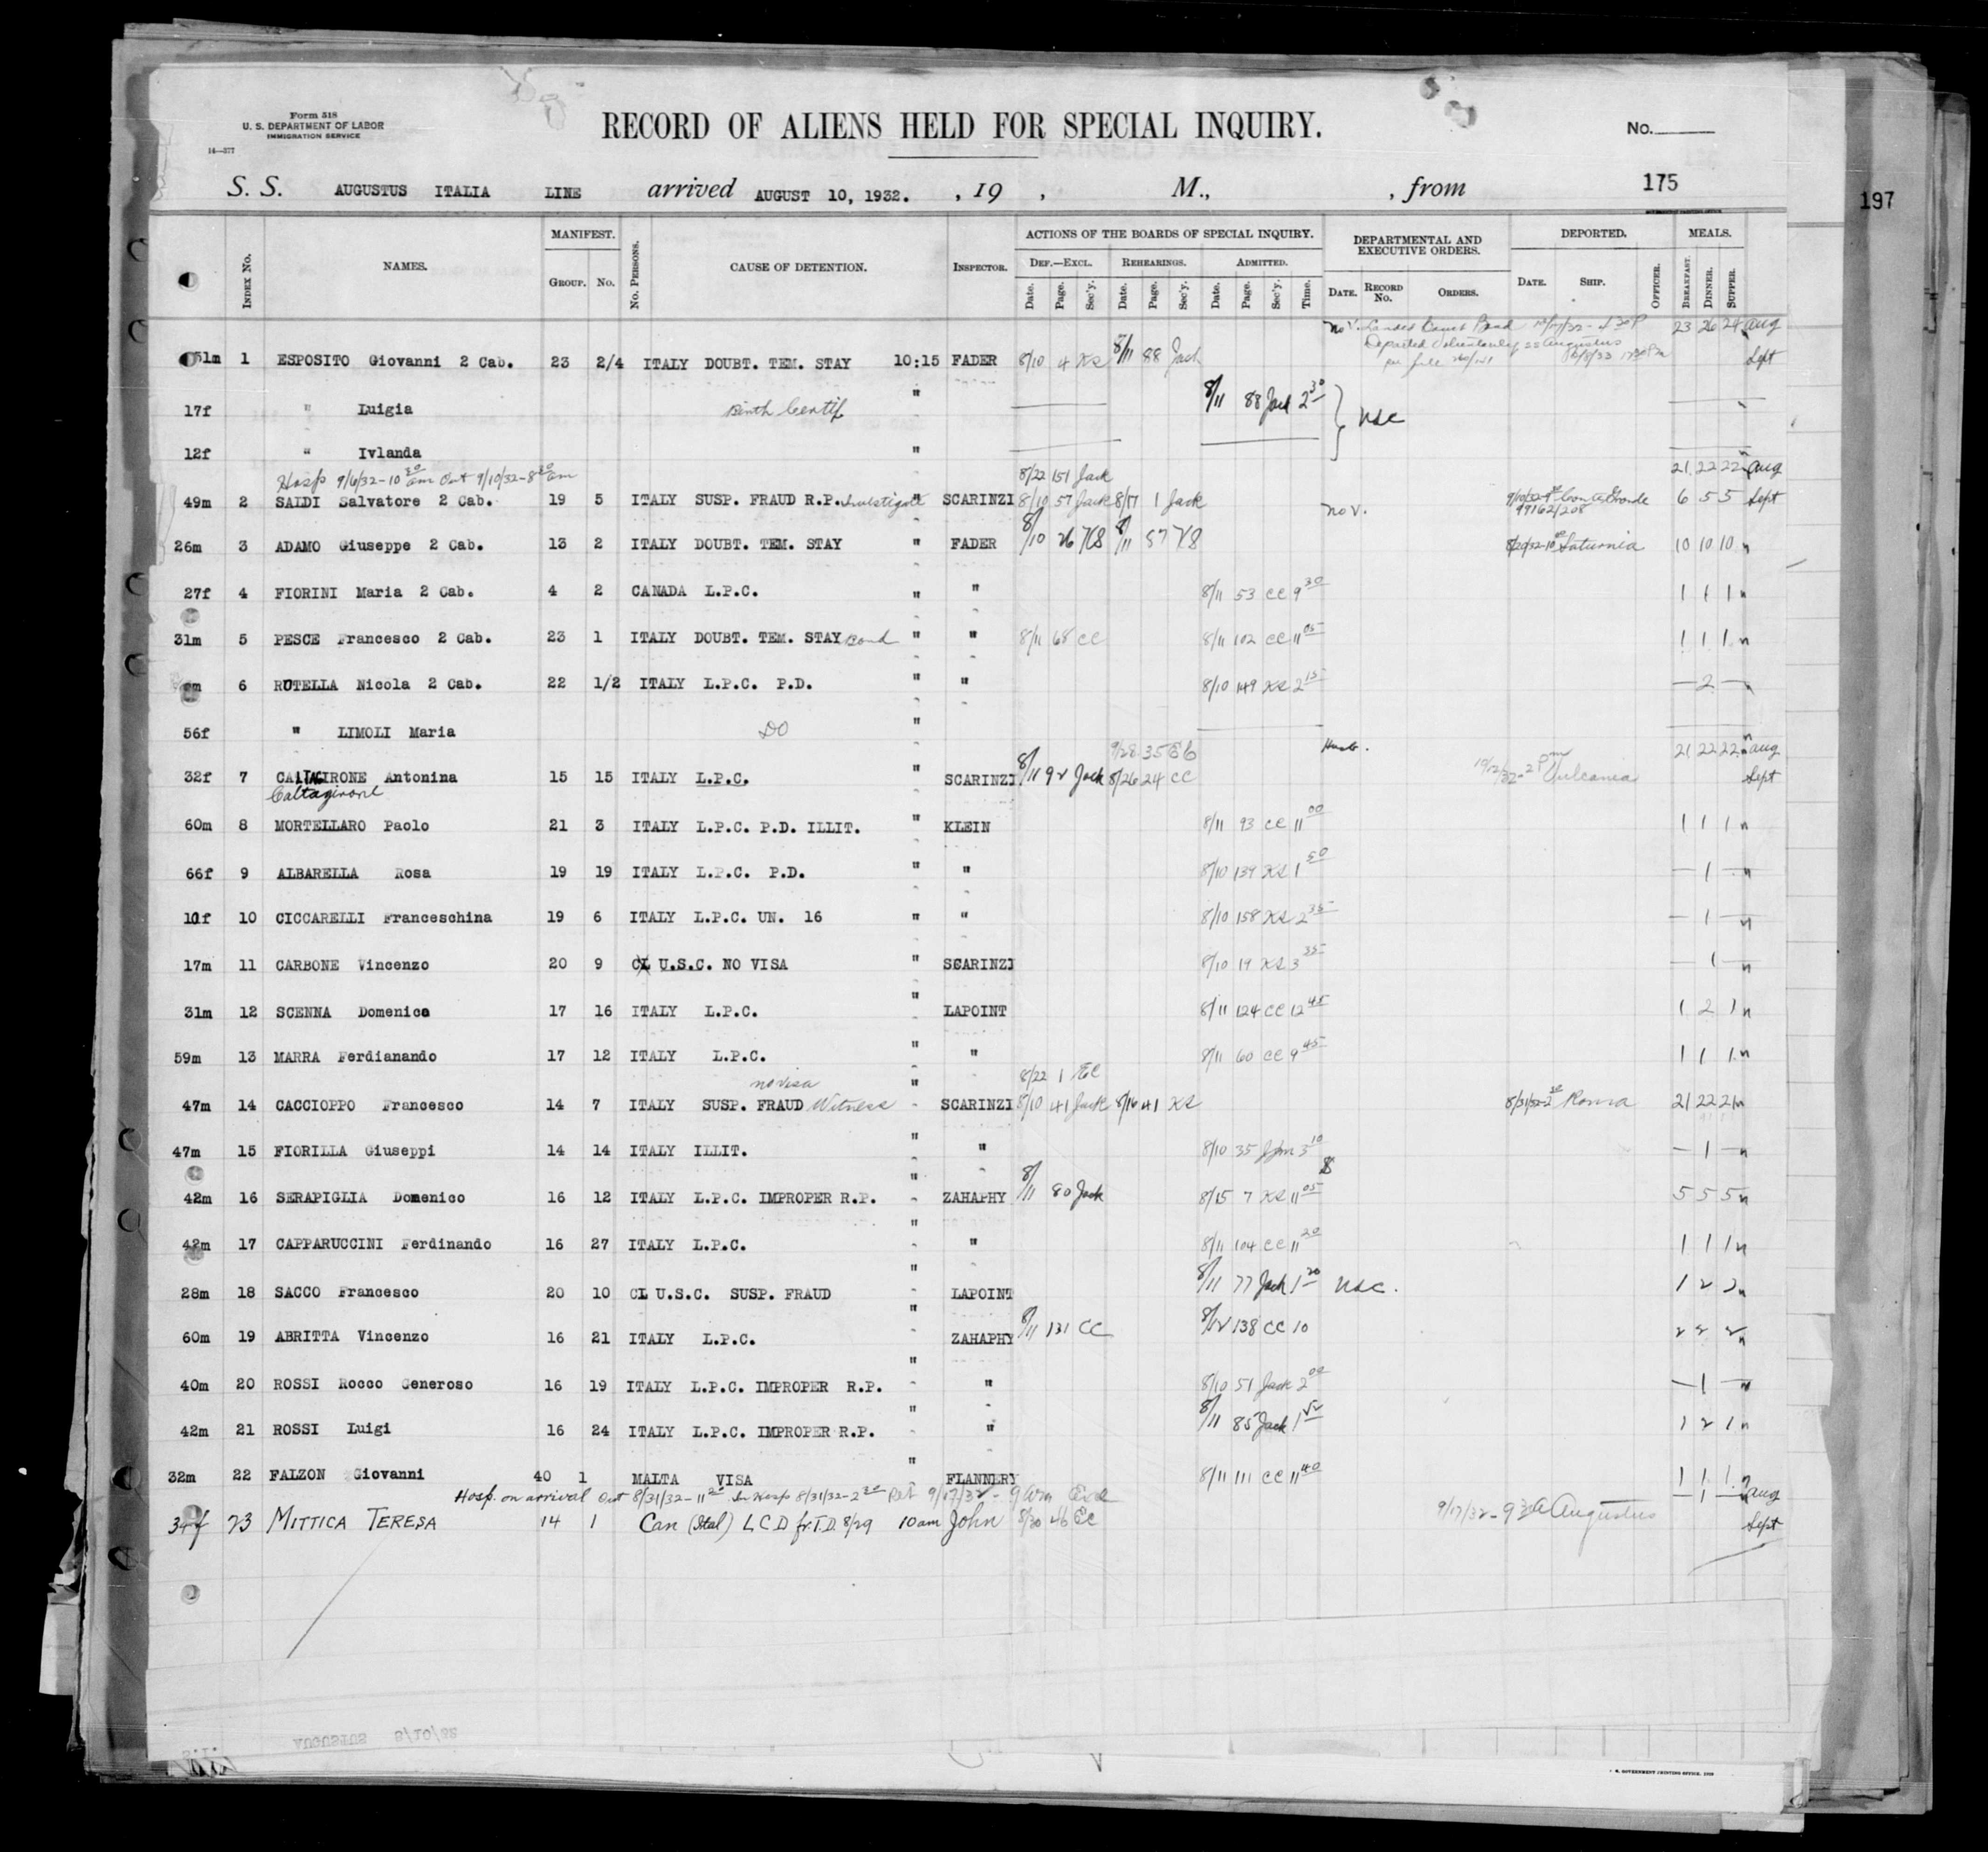 Form 518
U. S. DEPARTMENT OF LABOR
IMMIGRATION SERVICE
14—377
RECORD OF ALIENS HELD FOR SPECIAL INQUIRY.
No.
S. S. AUGUSTUS ITALIA LINE arrived AUGUST 10, 1932. , 19 , M., , from 175
197
INDEX No. NAMES. MANIFEST. GROUP. No. No. PERSONS. CAUSE OF DETENTION. INSPECTOR. ACTIONS OF THE BOARDS OF SPECIAL INQUIRY. DEF.—EXCL. Date. Page. Sec'y. REHEARINGS. Date. Page. Sec'y. ADMITTED. Date. Page. Sec'y. Time. DEPARTMENTAL AND EXECUTIVE ORDERS. DATE. RECORD No. ORDERS. DEPORTED. DATE. SHIP. OFFICER. MEALS. BREAKFAST. DINNER. SUPPER.
Nov. Landed Bond 23 26 24 Aug
Departed Voluntarily SS Augustus
31m 1 ESPOSITO Giovanni 2 Cab. 23 2/4 ITALY DOUBT. TEM. STAY 10:15 FADER 8/10 4 KS 8/11 88 Jack Sept
17f " Luigia Birth Certif " 8/11 88 Jack 2 30 USC
12f " Ivlanda "
Hosp 9/6/32-10 30 am Out 9/10/32-8 30 am 8/22 151 Jack 21 22 22 Aug
49m 2 SALDI Salvatore 2 Cab. 19 5 ITALY SUSP. FRAUD R.P. Investigate " SCARINZI 8/10 57 Jack 8/17 1 Jack Nov. Conte Grande 6 5 5 Sept
99162/208
26m 3 ADAMO Giuseppe 2 Cab. 13 2 ITALY DOUBT. TEM. STAY " FADER 8/10 26 KS 8/11 57 KS 8/20/32-10 Saturnia 10 10 10 "
27f 4 FIORINI Maria 2 Cab. 4 2 CANADA L.P.C. " " 8/11 53 CC 9 30 1 1 1 "
31m 5 PESCE Francesco 2 Cab. 23 1 ITALY DOUBT. TEM. STAY Bond " " 8/11 68 CC 8/11 102 CC 11 05 1 1 1 "
6 ROTELLA Nicola 2 Cab. 22 1/2 ITALY L.P.C. P.D. " " 8/10 149 KS 2 15 — 2 —
56f " LIMOLI Maria DO "
9/28 35 21 22 22 Aug
32f 7 CALTAGIRONE Antonina 15 15 ITALY L.P.C. " SCARINZI 8/11 92 Jack 8/26 24 CC Vulcania Sept
Caltagirone
60m 8 MORTELLARO Paolo 21 3 ITALY L.P.C. P.D. ILLIT. " KLEIN 8/11 93 CC 11 00 1 1 1 "
66f 9 ALBARELLA Rosa 19 19 ITALY L.P.C. P.D. " " 8/10 139 KS 1 50 — 1 — "
11f 10 CICCARELLI Franceschina 19 6 ITALY L.P.C. UN. 16 " " 8/10 158 KS 2 35 — 1 — "
17m 11 CARBONE Vincenzo 20 9 CL U.S.C. NO VISA " SCARINZI 8/10 19 KS 3 35 — 1 — "
31m 12 SCENNA Domenico 17 16 ITALY L.P.C. " LAPOINT 8/11 124 CC 12 45 1 2 1 "
59m 13 MARRA Ferdianando 17 12 ITALY L.P.C. " " 8/11 60 CC 9 45 1 1 1 "
no visa 8/22 1 EC
47m 14 CACCIOPPO Francesco 14 7 ITALY SUSP. FRAUD Witness " SCARINZI 8/10 41 Jack 8/16 41 KS 8/31/32-2 30 Roma 21 22 21 "
47m 15 FIORILLA Giuseppi 14 14 ITALY ILLIT. " " 8/10 35 3 10 — 1 — "
42m 16 SERAPIGLIA Domenico 16 12 ITALY L.P.C. IMPROPER R.P. " ZAHAPHY 8/11 80 Jack 8/15 7 KS 11 05 5 5 5 "
42m 17 CAPPARUCCINI Ferdinando 16 27 ITALY L.P.C. " " 8/11 104 CC 11 20 1 1 1 "
28m 18 SACCO Francesco 20 10 CL U.S.C. SUSP. FRAUD " LAPOINT 8/11 77 Jack 1 20 USC. 1 2 2 "
60m 19 ABRITTA Vincenzo 16 21 ITALY L.P.C. " ZAHAPHY 8/11 131 CC 8/12 138 CC 10 2 2 2 "
40m 20 ROSSI Rocco Generoso 16 19 ITALY L.P.C. IMPROPER R.P. " " 8/10 51 Jack 2 00 — 1 — "
42m 21 ROSSI Luigi 16 24 ITALY L.P.C. IMPROPER R.P. " " 8/11 85 Jack 1 1 2 1 "
32m 22 FALZON Giovanni 40 1 MALTA VISA " FLANNERY 8/11 111 CC 11 40 1 1 1 "
Hosp. on arrival Out 8/31/32-11 20 In Hosp 8/31/32-2 30 Ret 9/17/32- 9 am — 1 — Aug
34f 23 MITTICA TERESA 14 1 Can (Ital) L C D fr. T.D. 8/29 10 am John 8/30 46 EC 9/17/32-9 30 A Augustus Sept
AUGUSTUS 8/10/32